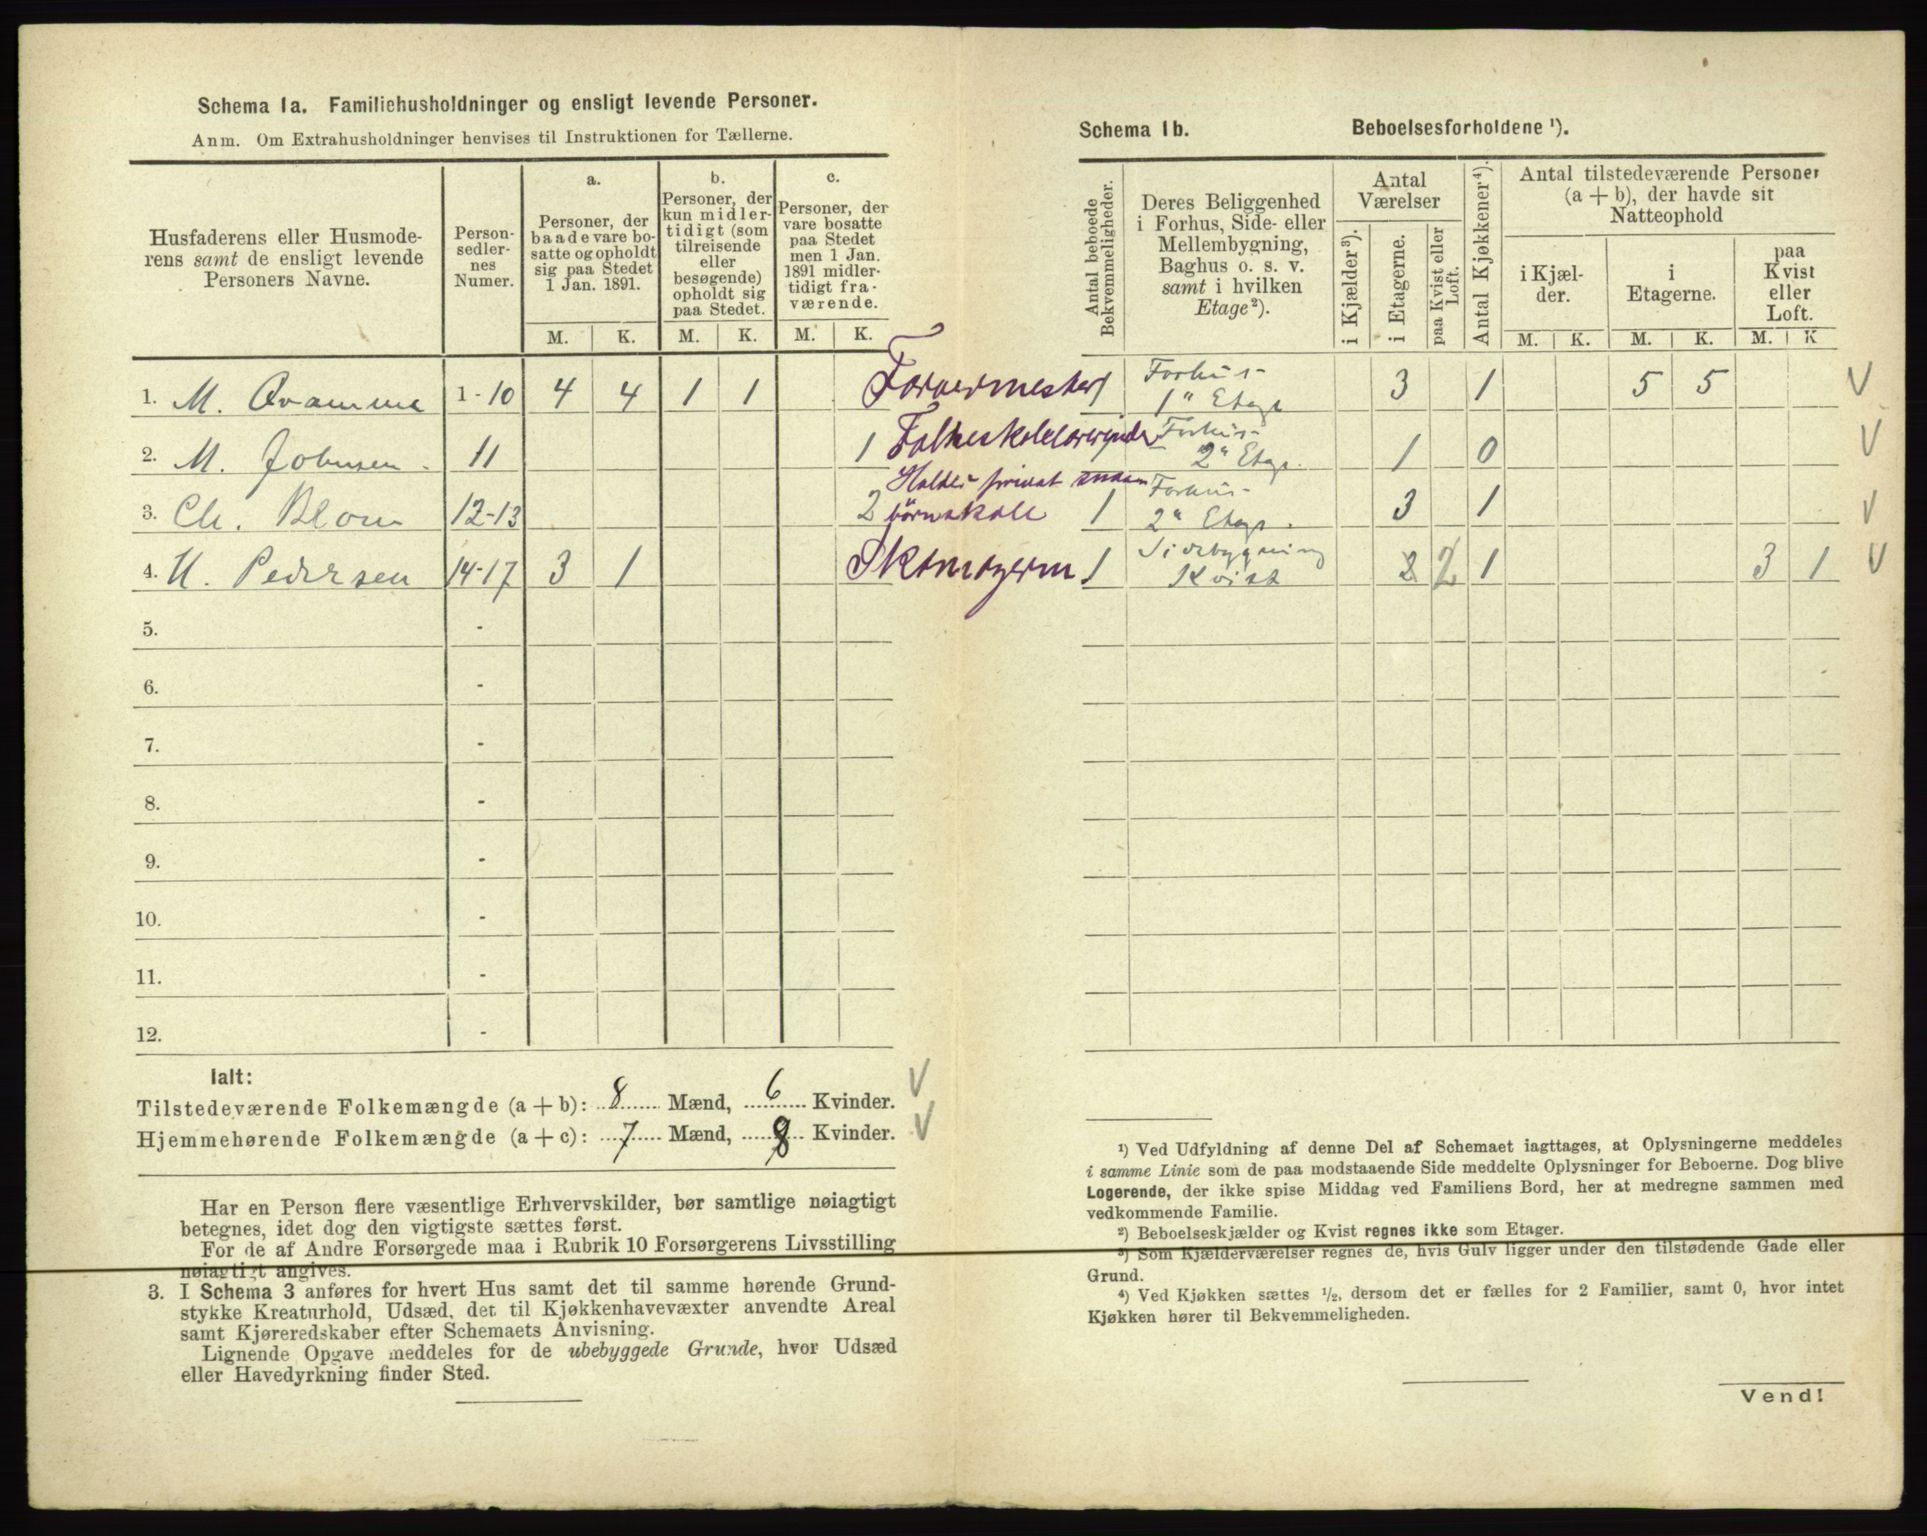 Schema 1a. Familiehusholdninger og ensligt levende Personer.
Anm. Om Extrahusholdninger henvises til Instruktionen for Tællerne.
Husfaderens eller Husmode-
rens samt de ensligt levende
Personers Navne.
Person-
sedler-
nes
Numer.
a.
Personer, der
baade vare bo-
satte og opholdt
sig paa Stedet
1 Jan. 1891.
b.
Personer, der
kun midler-
tidigt (som
tilreisende
eller
besøgende)
opholdt sig
paa Stedet.
c.
Personer, der
vare bosatte
paa Stedet
men 1 Jan.
1891 midler-
tidigt fra-
værende.
M. K. M. K. M. K.
1. M. Qvamme 1-10 4 4 1 1 Farvermester
2. M. Johnsen. 11 1 Folkeskolelærerinde
3. Ch. Blom 12-13 2 Holder privat
börneskole
4. U. Pedersen 14-17 3 1 Skomagerm
5. -
6. -
7. -
8. -
9. -
10. -
11. -
12. -
Ialt:
Tilstedeværende Folkemængde (a + b): 8 Mænd, 6 Kvinder. V
Hjemmehørende Folkemængde (a + c): 7 Mænd, 8 Kvinder. V
Har en Person flere væsentlige Erhvervskilder, bør samtlige nøiagtigt
betegnes, idet dog den vigtigste sættes først.
For de af Andre Forsørgede maa i Rubrik 10 Forsørgerens Livsstilling
nøiagtigt angives.
3. I Schema 3 anføres for hvert Hus samt det til samme hørende Grund-
stykke Kreaturhold, Udsæd, det til Kjøkkenhavevæxter anvendte Areal
samt Kjøreredskaber efter Schemaets Anvisning.
Lignende Opgave meddeles for de ubebyggede Grunde, hvor Udsæd
eller Havedyrkning finder Sted.
Schema 1b. Beboelsesforholdene ¹).
Antal beboede
Bekvemmeligheder.
Deres Beliggenhed
i Forhus, Side- eller
Mellembygning,
Baghus o. s. v.
samt i hvilken
Etage²).
Antal
Værelser
i Kjælder³).
i Etagerne.
paa Kvist eller
Loft.
Antal Kjøkkener⁴).
Antal tilstedeværende Personer
(a + b), der havde sit
Natteophold
i Kjæl-
der.
i
Etagerne.
paa
Kvist
eller
Loft.
M. K. M. K. M. K
1 Forhus-
1" Etage 3 1 5 5 V
Forhus-
2" Etage. 1 0 V
1 Forhus-
2" Etage. 3 1 V
1 Sidebygning
Kvist 2 2 1 3 1 V
¹) Ved Udfyldning af denne Del af Schemaet iagttages, at Oplysningerne meddeles
i samme Linie som de paa modstaaende Side meddelte Oplysninger for Beboerne. Dog blive
Logerende, der ikke spise Middag ved Familiens Bord, her at medregne sammen med
vedkommende Familie.
²) Beboelseskjælder og Kvist regnes ikke som Etager.
³) Som Kjælderværelser regnes de, hvis Gulv ligger under den tilstødende Gade eller
Grund.
⁴) Ved Kjøkken sættes ½, dersom det er fælles for 2 Familier, samt 0, hvor intet
Kjøkken hører til Bekvemmeligheden.
Vend!